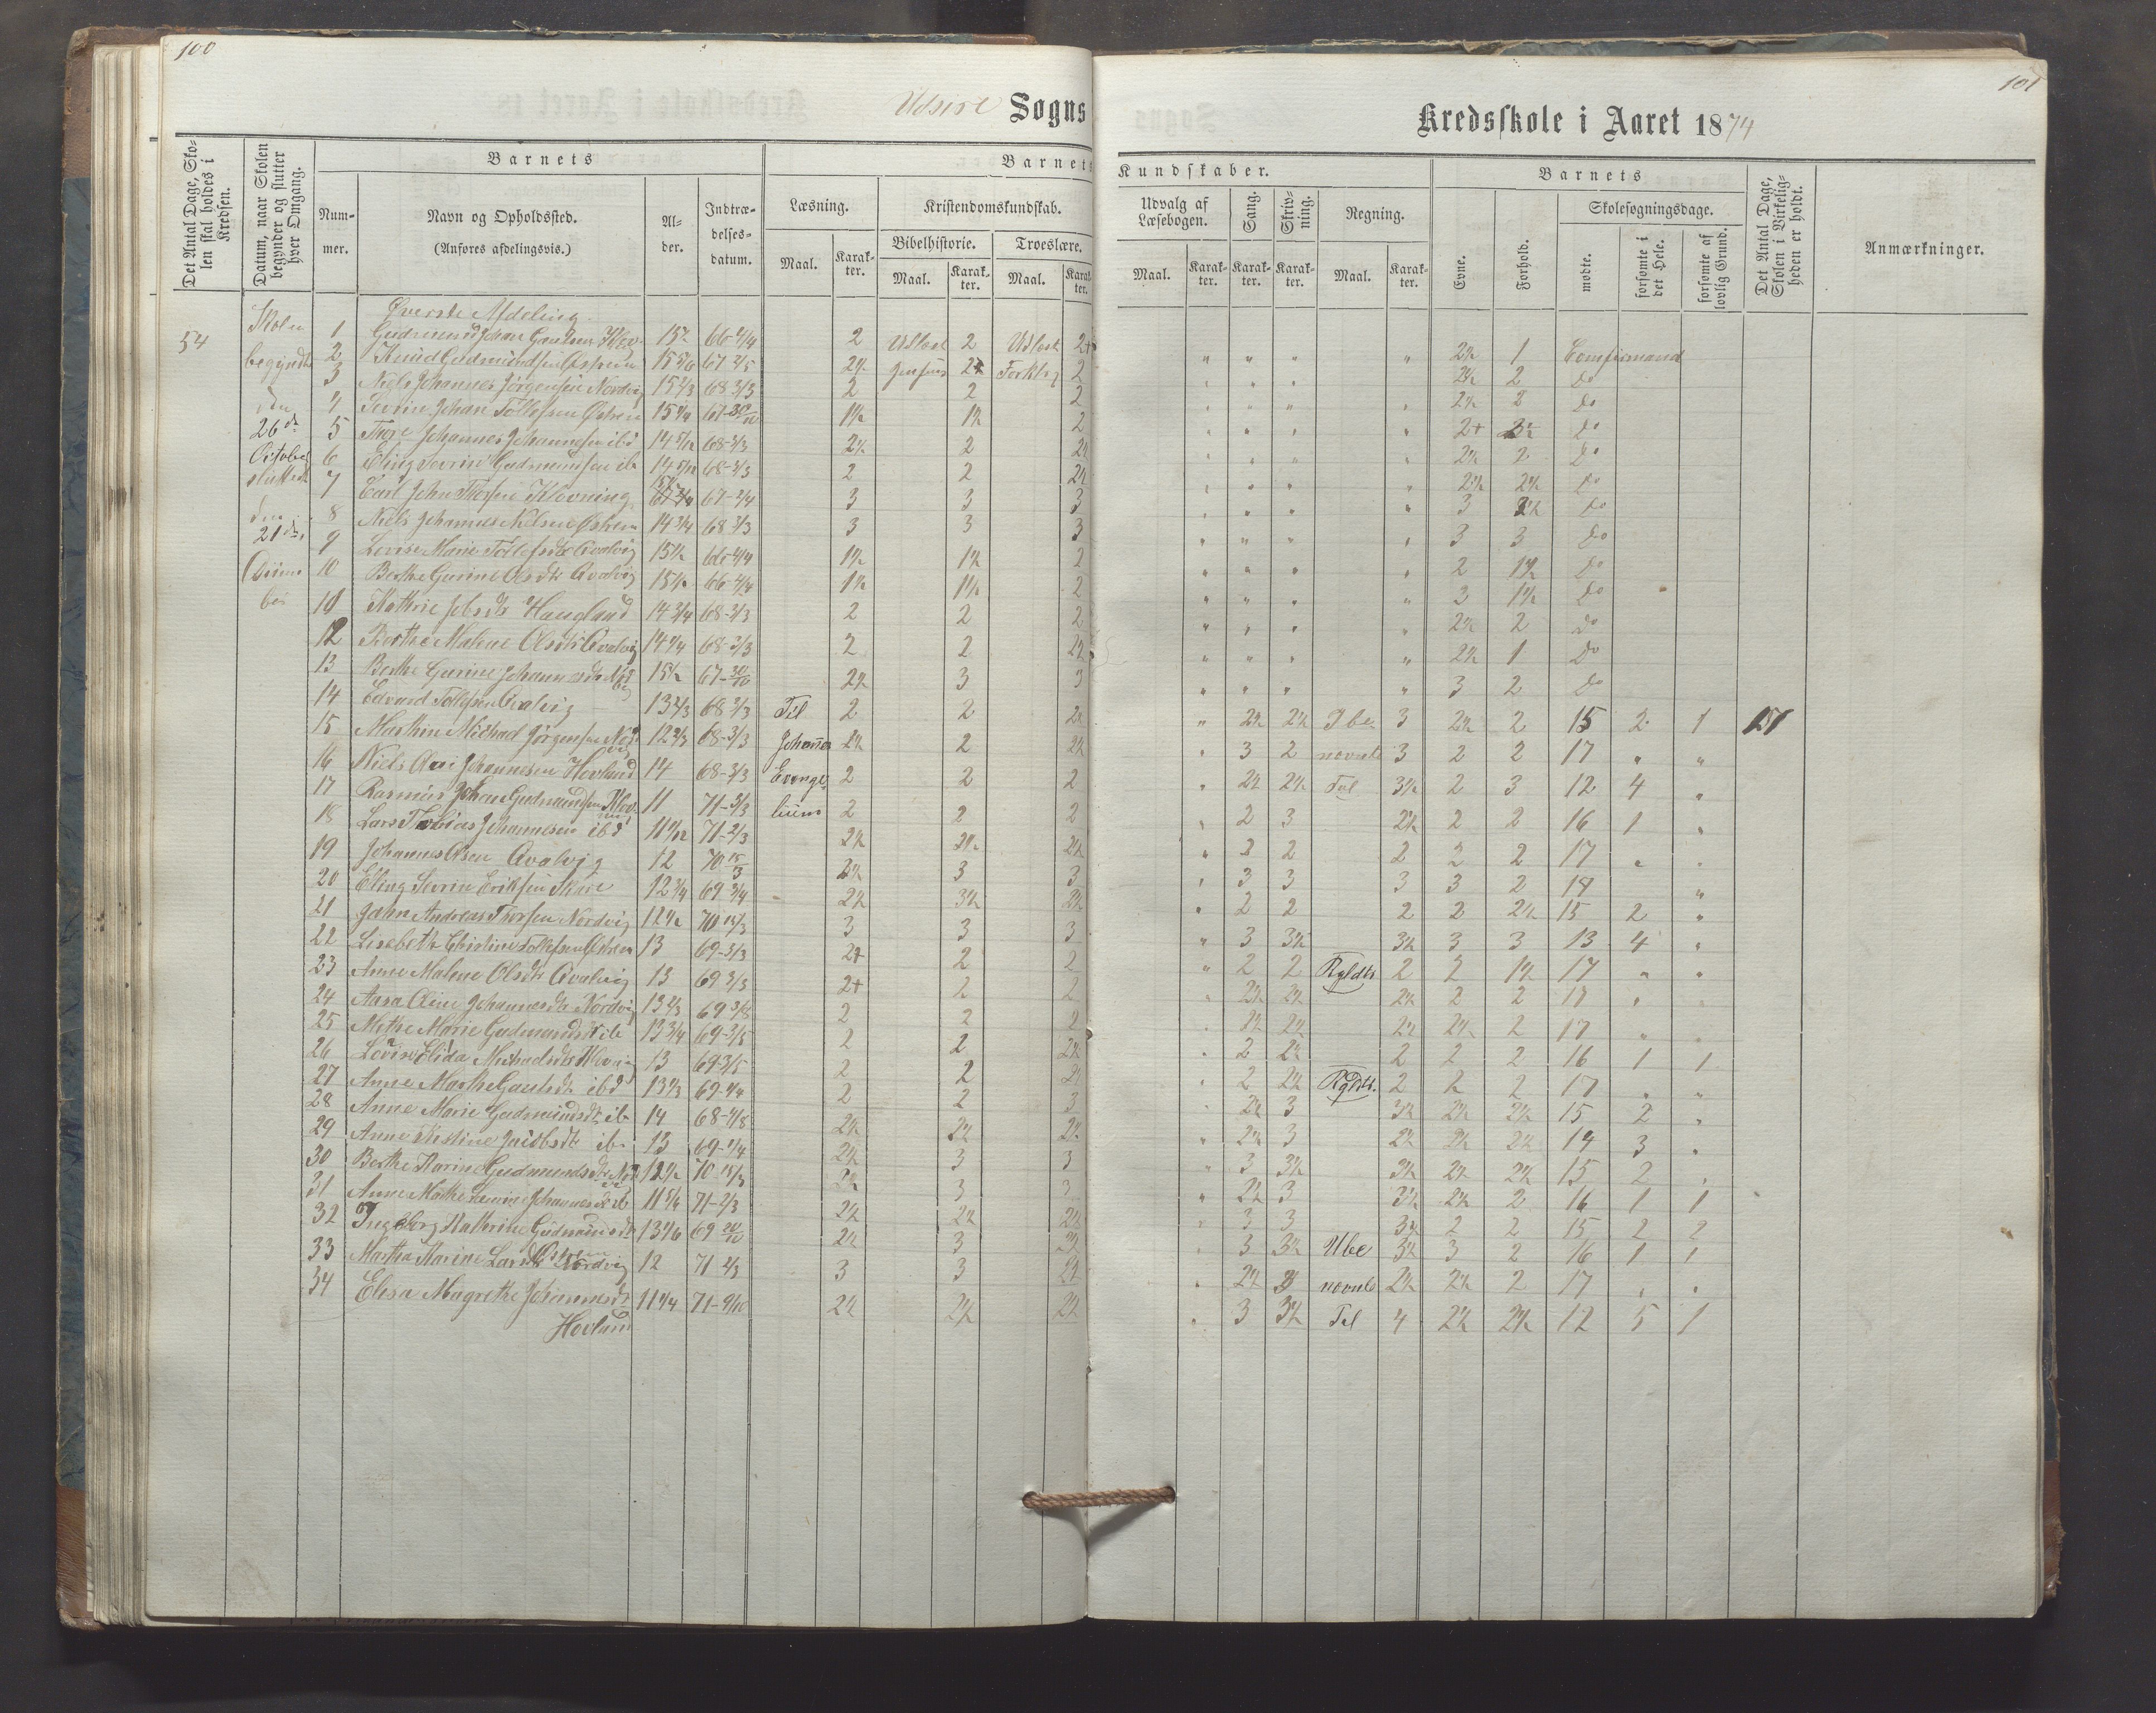 100
Udsire Sogns
Det Antal Dage, Sko-
len skal holdes i
Kredsen.
Datum, naar Skolen
begynder og slutter
hver Omgang.
Barnets
Num-
mer.
Navn og Opholdssted.
(Anføres afdelingsvis.)
Al-
der.
Indtræ-
delses-
datum.
Barnets
Læsning.
Maal.
Karak-
ter.
Kristendomskundskab.
Bibelhistorie.
Maal.
Karak-
ter.
Troeslære.
Maal.
Karak-
ter.
54
Skolen
begyndte
den
26de
October
sluttede
den
21de
Øverste Afdeling.
1 Gudmund Johan Gautsen Klov- 15½ 66 4/4 2 Udlæst 2 Udlæst 2+
2 Knud Gudmundsen Østrem 15 5/6 67 2/5 2½ 2 Forklg 2
3 Niels Johannes Jørgensen Nordvig 15 2/3 68 3/3 2 2 2
4 Sevrin Johan Tollefsen Østrem 15¼ 67 30/10 1½ 1½ 2
5 Thore Johannes Johannesen ibd 14 5/12 68-3/3 2½ 2 2½
6 Eling Sevrin Gudmundsen ib 14 5/12 68-3/3 2 2 2½
7 Carl John Thorsen Klovning 67-2/4 3 3 3
8 Niels Johannes Nilsen Østrem 14¾ 68 3/3 3 3 3
9 Lovise Marie Tollefsdtr Avalvig 15½ 66 4/4 1½ 1½ 2
10 Berthe Gurine Olsdtr Avalvig 15½ 66-4/4 1½ 1½ 2
11 Kathrie Jobsdtr Haugland 14¾ 68-3/3 2 2 2
12 Berthe Malene Olsdtr Avalvig 14¼ 68-3/3 2 2 2½
13 Berthe Gurine Johannesdtr Nordvig 15½ 67-30/10 2½ 3 3
14 Edvard Tollefsen Avalvig 13 2/3 68 3/3 Til 2 2 2½
15 Mathin Michael Jørgensen Nordvig 12 2/3 68-3/3 Johannes 2½ 2 2½
16 Niels Johannesen Hovland 14 68-3/3 Evange- 2 2 2
17 Rasmus Johan Gudmundsen Klovning 11 71-3/3 lium 2 2 2
18 Lars Tobias Johannesen ibd 11 71-2/3 2½ 2½ 2½
19 Johannes Olsen Avalvig 12 70 15/3 2½ 3 3
20 Eling Sevrin Eriksen Skare 12¾ 69 3/4 2½ 3½ 2½
21 John Andreas Thorsen Nordvig 12½ 70 15/3 3 3 3
22 Lisebeth Christine Tollefsen Østrem 13 69-3/3 2+ 2 2
23 Anne Malene Olsdtr Avalvig 13 69 3/3 2+ 2 2
24 Aasa Oline Johannesdtr Nordvig 13 2/3 2 2 2
25 Methe Marie Gudmundsdtr ib 13¾ 69-3/5 2 2 2½
26 Lovise Elida Michaelsdtr Klovning 13 69 3/5 2 2 2½
27 Anne Marthe Gautsdtr ibd 13 69 4/4 2 2 3
28 Anne Marie Gudmundsdtr ib 14 68-4/8 2½ 2½ 2½
29 Anne Kristine Jacobsdtr ib 13 69-4/4 2½ 3 3
30 Berthe Karine Gudmundsdtr 12½ 70-15/3 2½ 3 3
31 Anne Marthe Johannesdtr ib 11 71-2/3 2½ 2½ 2½
32 Ingeborg Kathrine Gudmundsdtr Østrem 13 69 20/10 2½ 3 3½
33 Martha Marine Larsdtr Nordvig 12 71 2/3 3 3 2½
34 Elisa Magrethe Johannesdtr 11¼ 71-9/10 2½ 2½ 2½
Hovland
101
Kredsskole i Aaret 1874
Kundskaber.
Udvalg af
Læsebogen.
Maal.
Karak-
ter.
Sang.
Karak-
ter.
Skriv-
ning.
Karak-
ter.
Regning.
Maal.
Karak-
ter.
Barnets
Evne.
Forhold.
Skolesøgningsdage.
mødte.
forsømte i
det Hele.
forsømte af
lovlig Grund.
Det Antal Dage,
Skolen i Virkelig-
heden er holdt.
Anmærkninger.
" " " " 2½ 1 Comfirmand
" " " 2½ 2 do
" " " " 2½ 2 do
" " " " 2+ do
" " " " 2½ 2 do
" " " " 2½ 2½ do
" " " " 3 do
" " " " 3 3 do
" " " " 2 1½ do
" " " " 3 1½ do
" " " " 2½ 2 do
" " " " 2½ 1 do
" " " " 3 2 do
" 2½ 2½ Ube 3 2½ 2 15 2 1
" 3 2 nævnte 3 2 2 17 " "
" 2½ 2½ Tal 3½ 2 3 12 4 "
" 2 3 2½ 2 2 16 1 "
" 2 2 2 2 2 17 " "
" 3 3 3 3 2 18 "
" 2 2 2 2 2½ 15 2 "
" 3 3½ 3½ 3 3 13 4 "
" 2 2 Rgldtr 2 2 1½ 17 " "
" 2½ 2½ 2½ 2 2 17 " "
" 2½ 2½ 2½ 2½ 2 17 " "
" 2 2½ 2 2 2 16 1 1
" 2 2½ Rgldtr. 2 2 2 17 " "
" 2½ 3 3½ 2½ 2½ 15 2 "
" 2½ 3 2½ 2½ 2½ 14 3 "
" 3 3½ 3½ 2½ 2½ 15 2 "
" 2½ 3 3½ 2½ 2 16 1 1
" 3 3 3½ 2 2 15 2 2
" 3 3½ Ube 3½ 3 2 16 1 1
" 2½ 3 nævnte 2½ 2½ 2 17 " "
" 3 3½ Tal 4 2½ 2½ 12 5 1